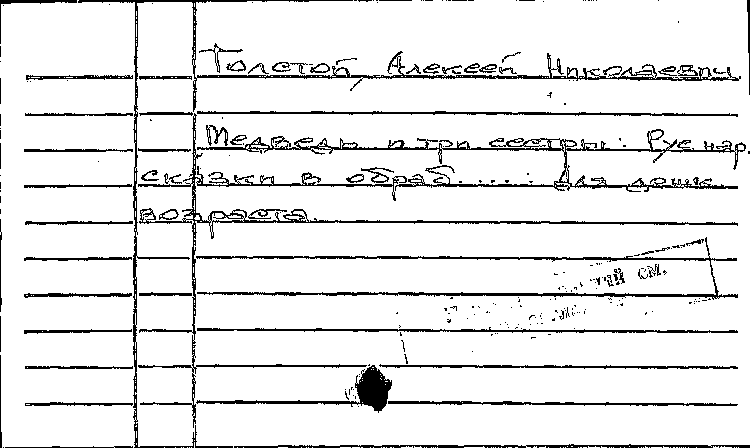 Толстой, Алексей Николаевич
Медведь и три сестры: Рус нар.
сказки в обраб.....: Для дошк.
возраста.
см.